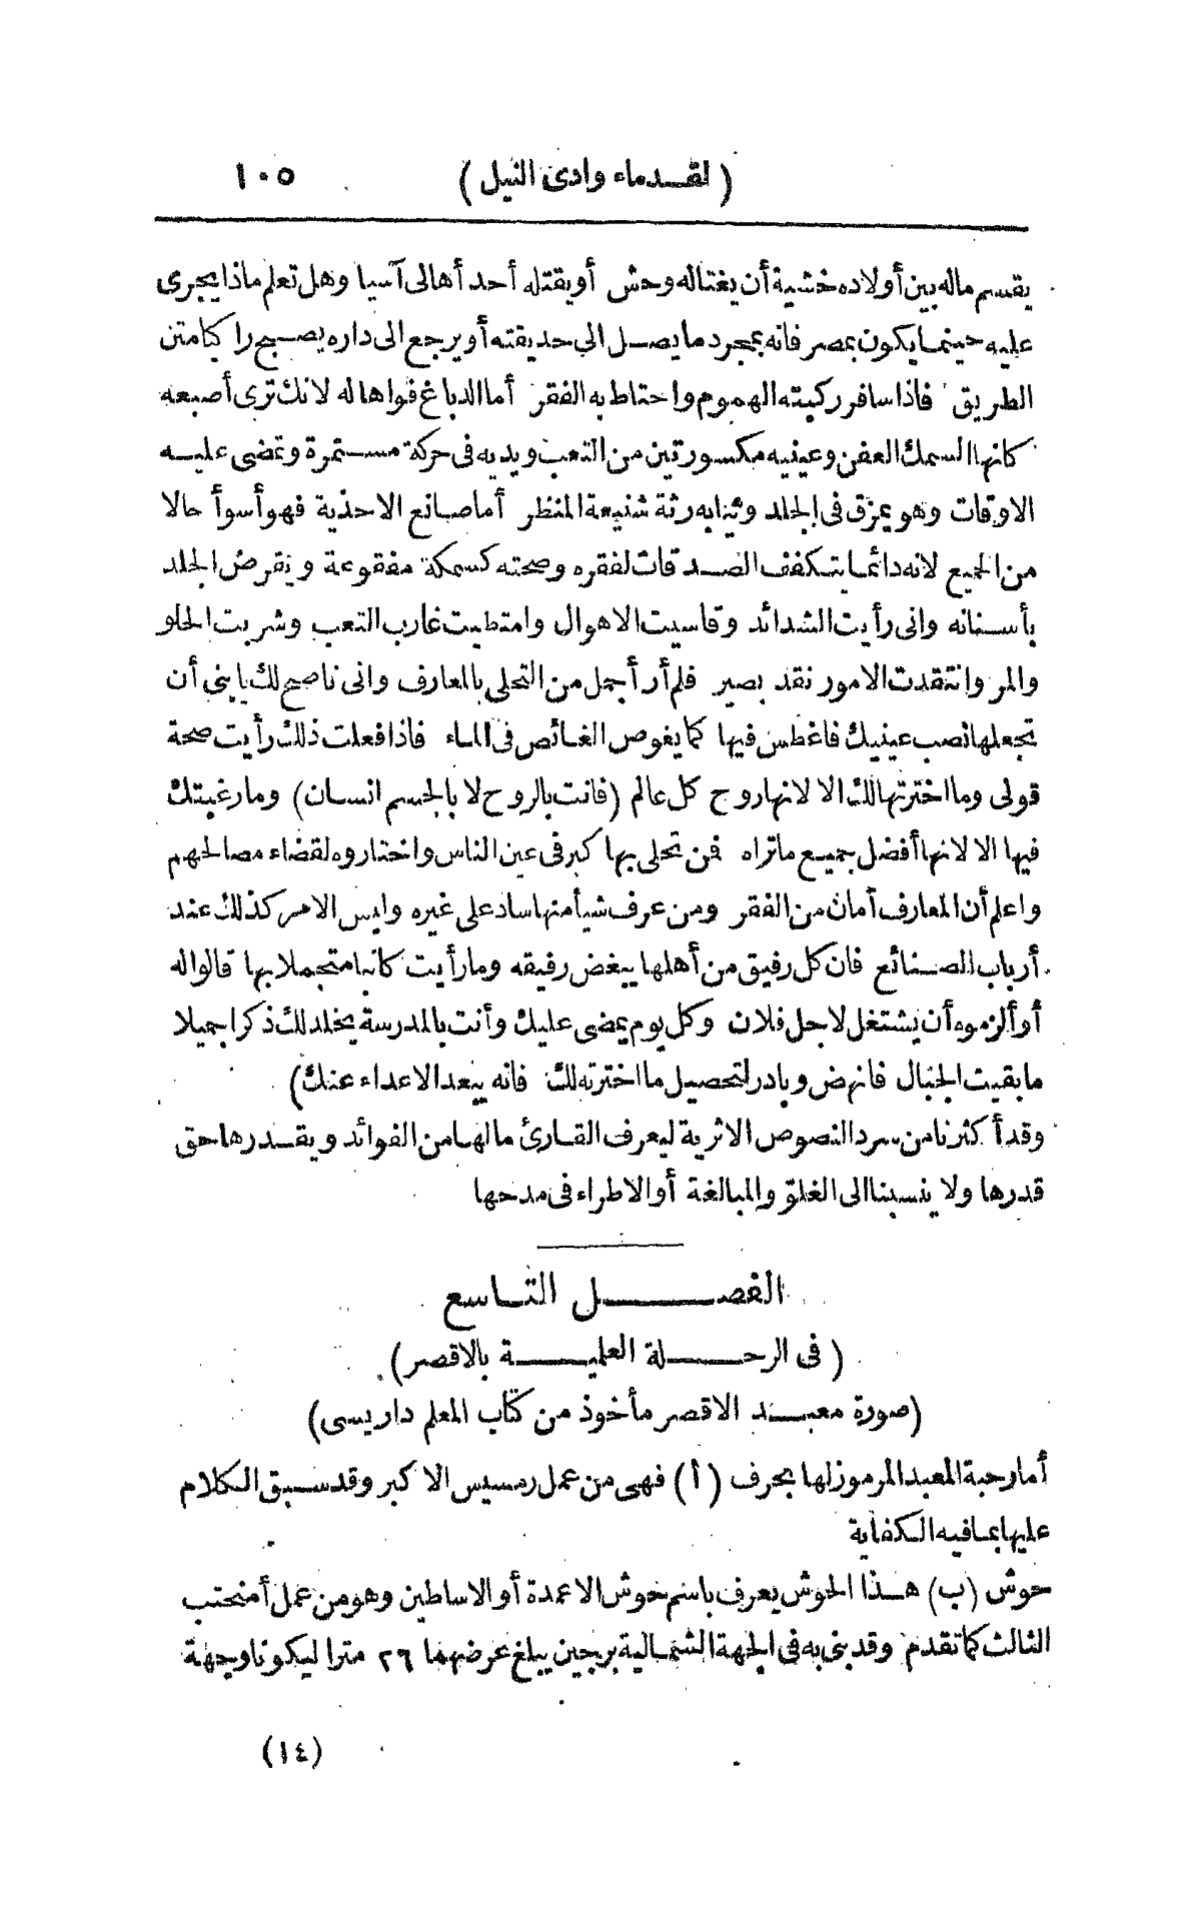 (لقدماء وادى النيل) ١٠٥
يقسم ماله بين أولاده خشية أن يغتاله وحش أو يقتله أحد أهالى آسيا وهل تعلم ماذا يجرى
عليه حينما يكون بمصر فانه بمجرد ما يصل الى حديقته أو يرجع الى داره يصبح راكبا متن
الطريق فاذا سافر ركبته الهموم واحتاط به الفقر أما الدباغ فواها له لانك ترى أصبعه
كانها السمك العفن وعينيه مكسورتين من التعب ويديه فى حركة مستمرة وتمضى عليه
الاوقات وهو يمزق فى الجلد وثيابه رثة شنيعة المنظر أما صانع الاحذية فهو أسوأ حالا
من الجميع لانه دائما يتكفف الصدقات لفقره وصحته كسمكة مفقوعة ويقرض الجلد
بأسنانه وانى رأيت الشدائد وقاسيت الاهوال وامتطيت غارب التعب وشربت الحلو
والمر وانتقدت الامور نقد بصير فلم أر أجمل من التحلى بالمعارف وانى ناصح لك يابنى أن
تجعلها نصب عينيك فاغطس فيها كما يغوص الغائص فى الماء فاذا فعلت ذلك رأيت صحة
قولى وما اخترتها لك الا لانها روح كل عالم (فانت بالروح لا بالجسم انسان) وما رغبتك
فيها الا لانها أفضل جميع ماتراه فمن تحلى بها كبر فى عين الناس واختاروه لقضاء مصالحهم
واعلم أن المعارف أمان من الفقر ومن عرف شيأ منها ساد على غيره وليس الامر كذلك عند
أرباب الصنائع فان كل رفيق من أهلها يبغض رفيقه وما رأيت كاتبا متجملا بها قالوا له
أو ألزموه أن يشتغل لاجل فلان وكل يوم يمضى عليك وأنت بالمدرسة يخلد لك ذكرا جميلا
ما بقيت الجبال فانهض وبادر لتحصيل ما اخترته لك فانه يبعد الاعداء عنك)
وقد أكثرنا من سرد النصوص الاثرية ليعرف القارئ مالها من الفوائد ويقدرها حق
قدرها ولا ينسبنا الى الغلو والمبالغة أو الاطراء فى مدحها
الفصل التاسع
(فى الرحلة العلمية بالاقصر)
(صورة معبد الاقصر مأخوذ من كتاب المعلم داريسى)
أما رحبة المعبد المرموز لها بحرف (أ) فهى من عمل رمسيس الاكبر وقد سبق الكلام
عليها بما فيه الكفاية
حوش (ب) هذا الحوش يعرف باسم حوش الاعمدة أو الاساطين وهو من عمل أمنحتب
الثالث كما تقدم وقد بنى به فى الجهة الشمالية برجين يبلغ عرضهما ٢٦ مترا ليكونا وجهة
(١٤)